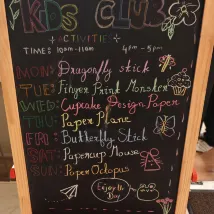 KIDS CLUB
ACTIVITIES
TIME: 10am-11am 4pm-5pm
MON: Dragonfly stick
TUE: Finger Print Monster
WED: Cupcake Design Paper
THU: Paper Plane
FRI: Butterfly Stick
SAT: Papercup Mouse
SUN: Paper Octopus
Enjoy the
Day